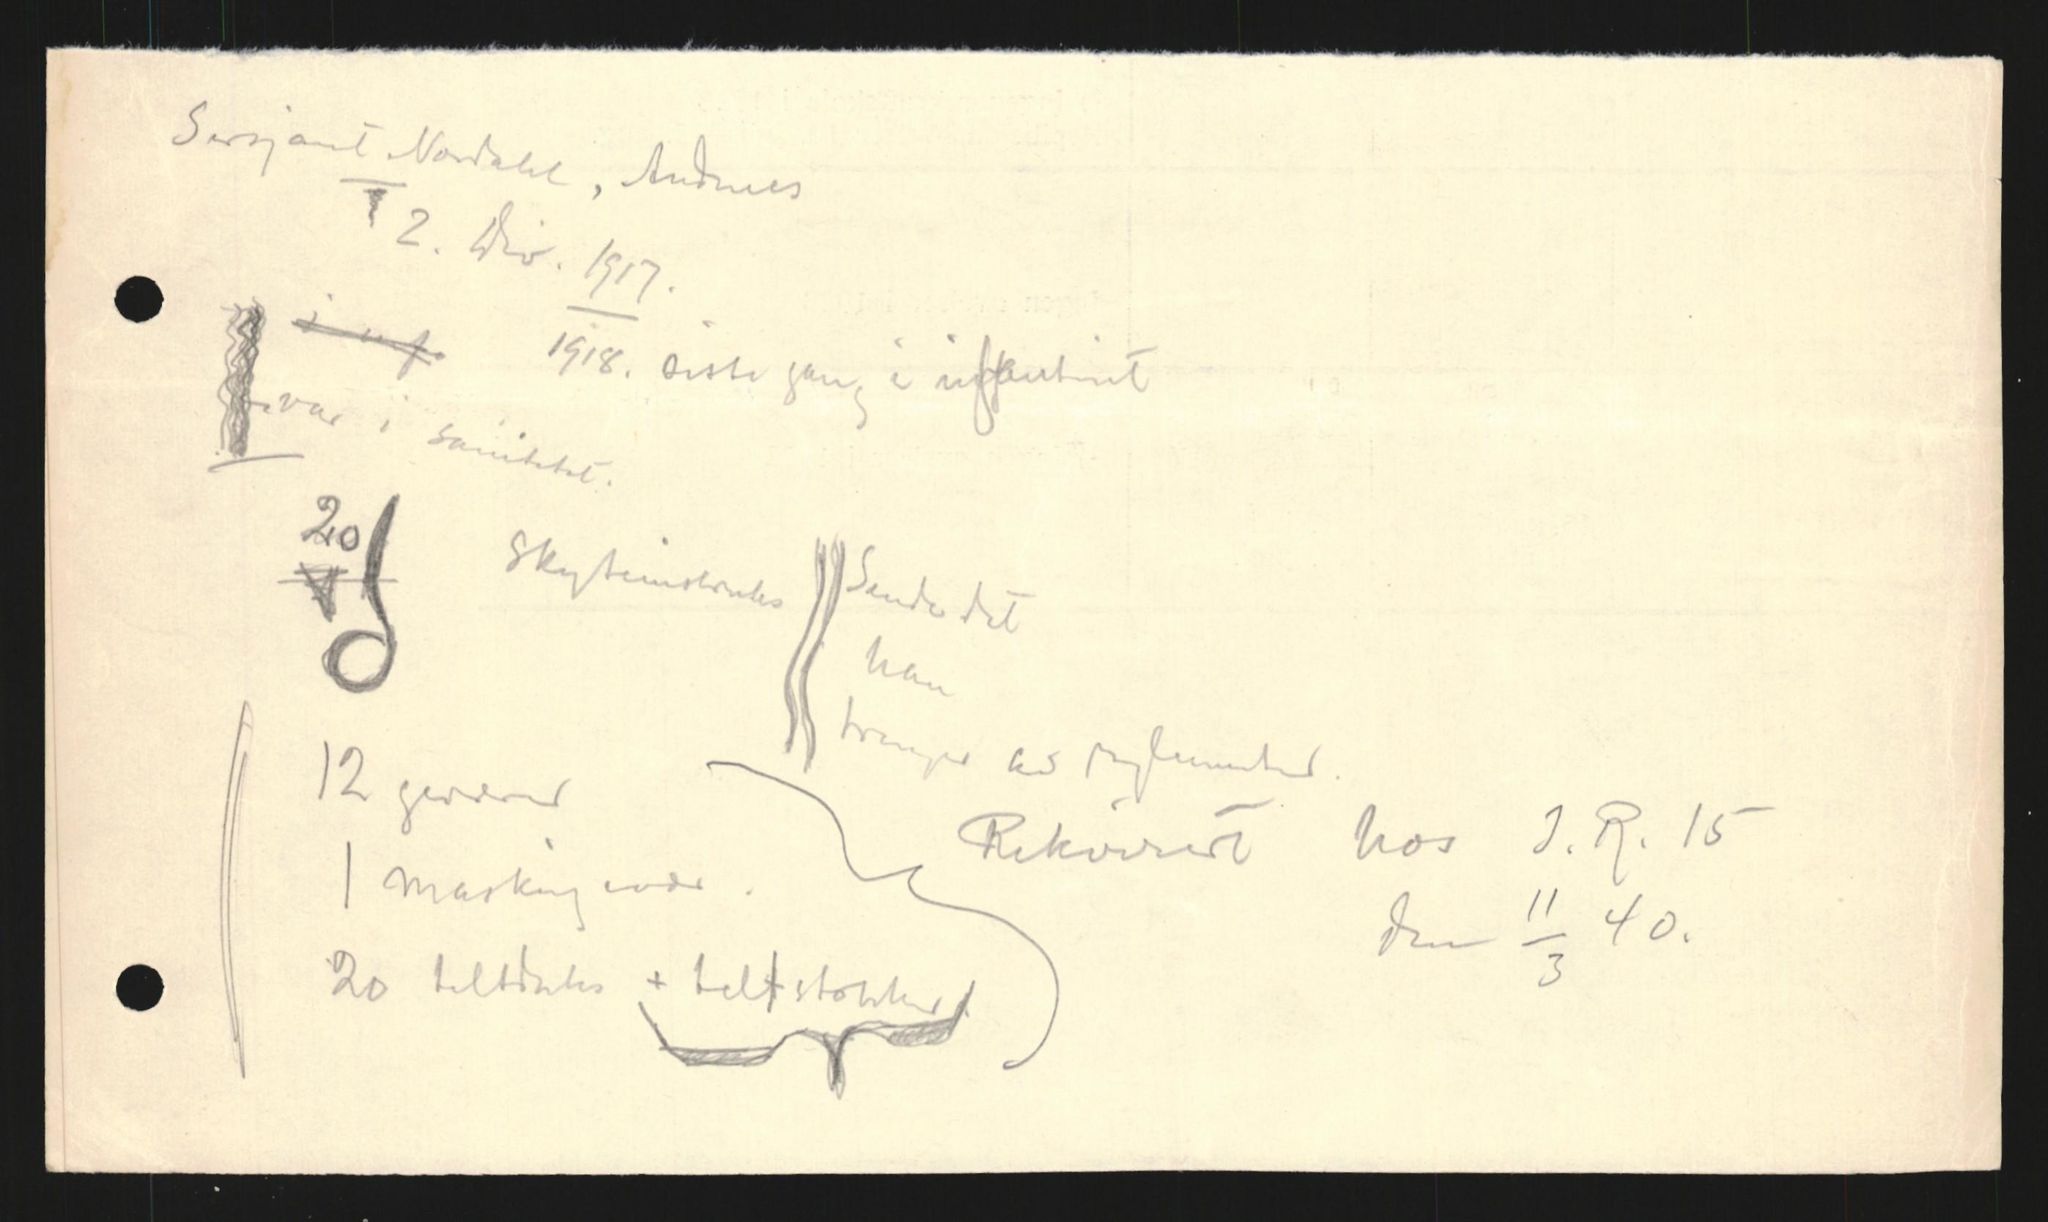 Sersjant Nordahl, Andreas
2. Div. 1917.
inf.
1918. siste gang i infanteriet
var i sanitetet.
20
Skyteinstruks
Sende det
han
trenger av reglementer.
12 geværer
1 maskingevær.
20 teltduker + teltstokker
Rekvirert hos I.R. 15
den 11/3 40.